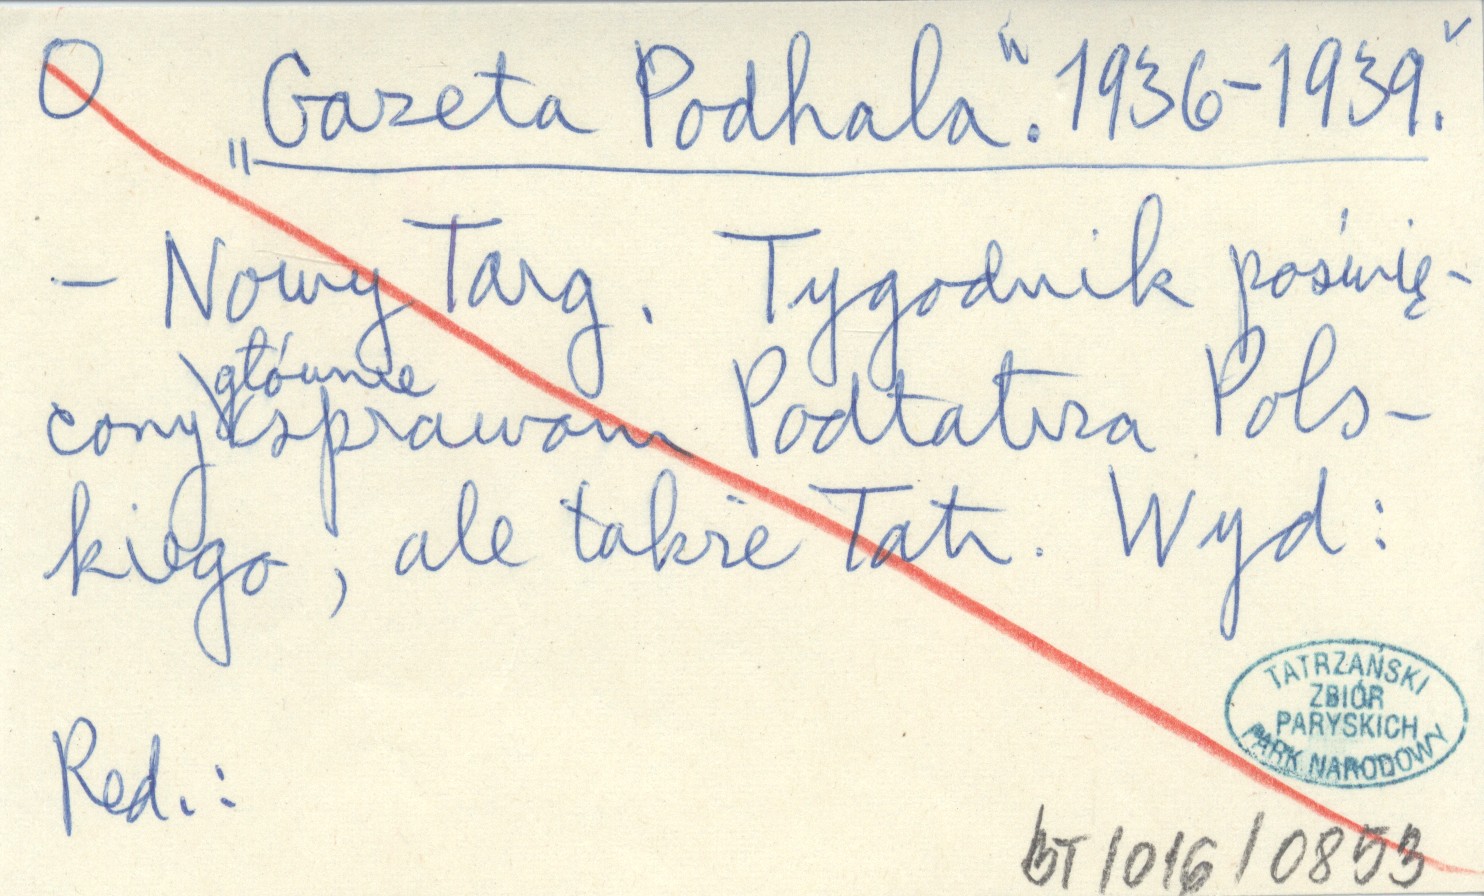 O „Gazeta Podhala“. 1936-1939.
– Nowy Targ. Tygodnik poświę-
głównie
cony sprawom Podtatrza Pols-
kiego, ale także Tatr. Wyd:
Red.:
TATRZAŃSKI
ZBIÓR
PARYSKICH
PARK NARODOWY
BT/016/0853